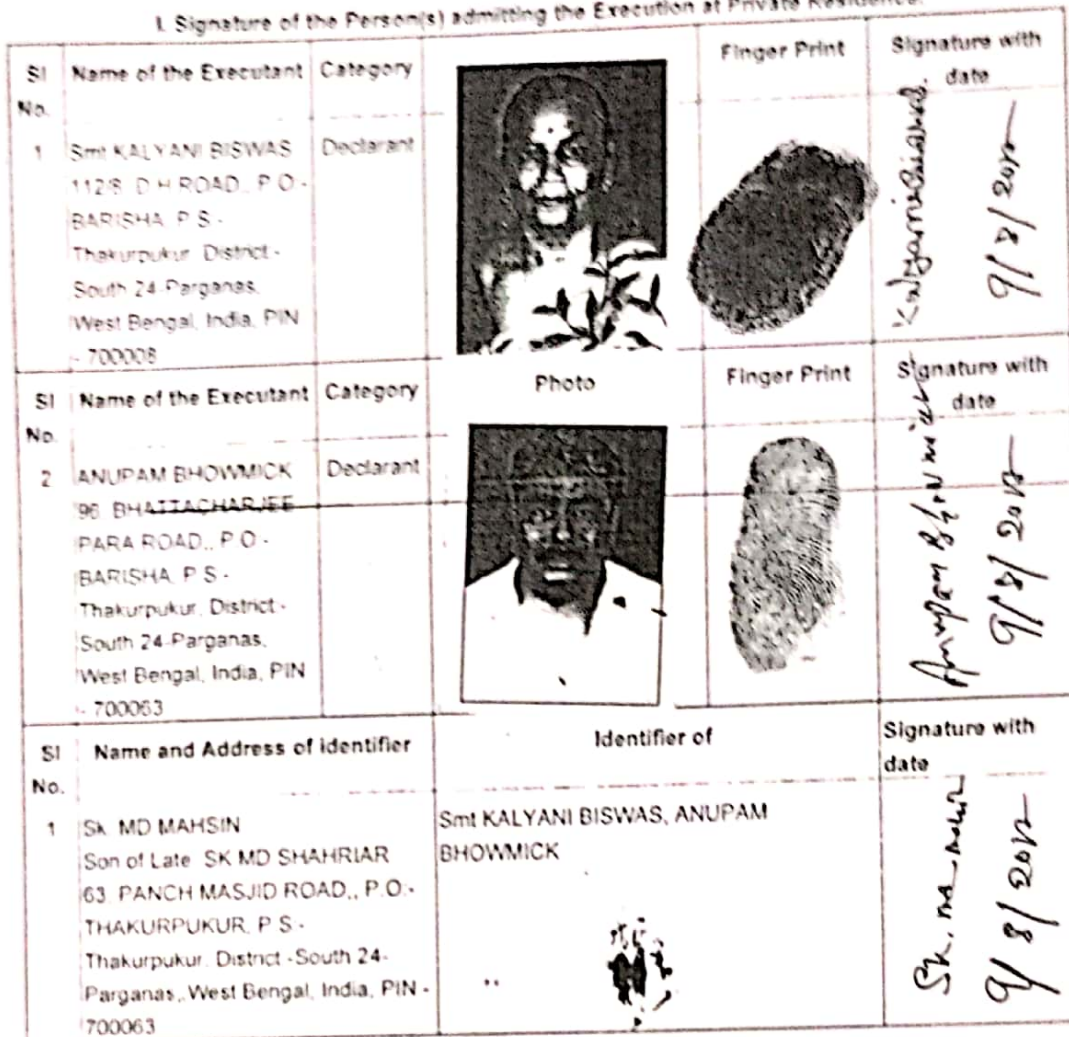 I. Signature of the Person(s) admitting the Execution at Private Residence.
Sl No. Name of the Executant Category Finger Print Signature with date
1 Smt KALYANI BISWAS Declarant
112/8, D H ROAD,, P.O:-
BARISHA, P.S:-
Thakurpukur, District:-
South 24-Parganas,
West Bengal, India, PIN
:- 700008
Kalyani Biswas.
9/8/2012
Sl No. Name of the Executant Category Photo Finger Print Signature with date
2 ANUPAM BHOWMICK Declarant
96, BHATTACHARJEE
PARA ROAD,, P.O:-
BARISHA, P.S:-
Thakurpukur, District:-
South 24-Parganas,
West Bengal, India, PIN
:- 700063
Anupam Bhowmick
9/8/2012
Sl No. Name and Address of identifier Identifier of Signature with date
1 Sk. MD MAHSIN
Son of Late. SK MD SHAHRIAR
63, PANCH MASJID ROAD,, P.O:-
THAKURPUKUR, P.S:-
Thakurpukur, District:-South 24-
Parganas,, West Bengal, India, PIN:-
700063
Smt KALYANI BISWAS, ANUPAM
BHOWMICK
Sk. md
9/8/2012